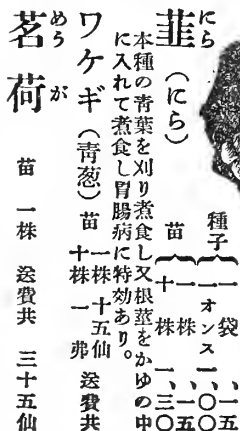 韮（にら）
にら
種子
一袋 、一五
一オンス 一、〇〇
苗
一株 、一五
十株 一、三〇
本種の青葉を刈り煮食し又根莖をかゆの中
に入れて煮食し胃腸病に特効あり。
ワケギ（靑葱）苗
一株 十五仙
十株 一弗
送費共
茗荷 苗 一株 送費共 三十五仙
めうが